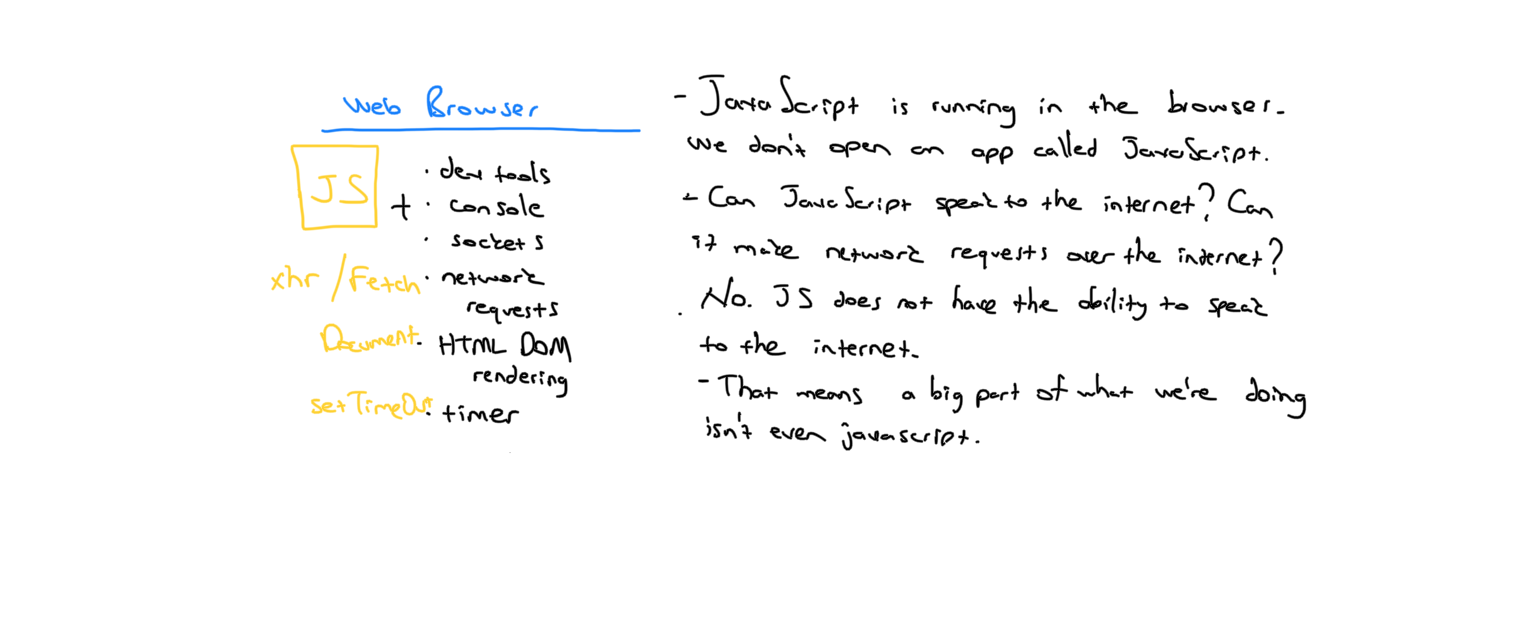 Web Browser
JS
+
· dev tools
· console
· sockets
xhr / Fetch · network
requests
Document · HTML DOM
rendering
setTimeOut · timer
- JavaScript is running in the browser.
We don't open an app called JavaScript.
- Can JavaScript speak to the internet? Can
it make network requests over the internet?
· No. JS does not have the ability to speak
to the internet.
- That means a big part of what we're doing
isn't even javascript.